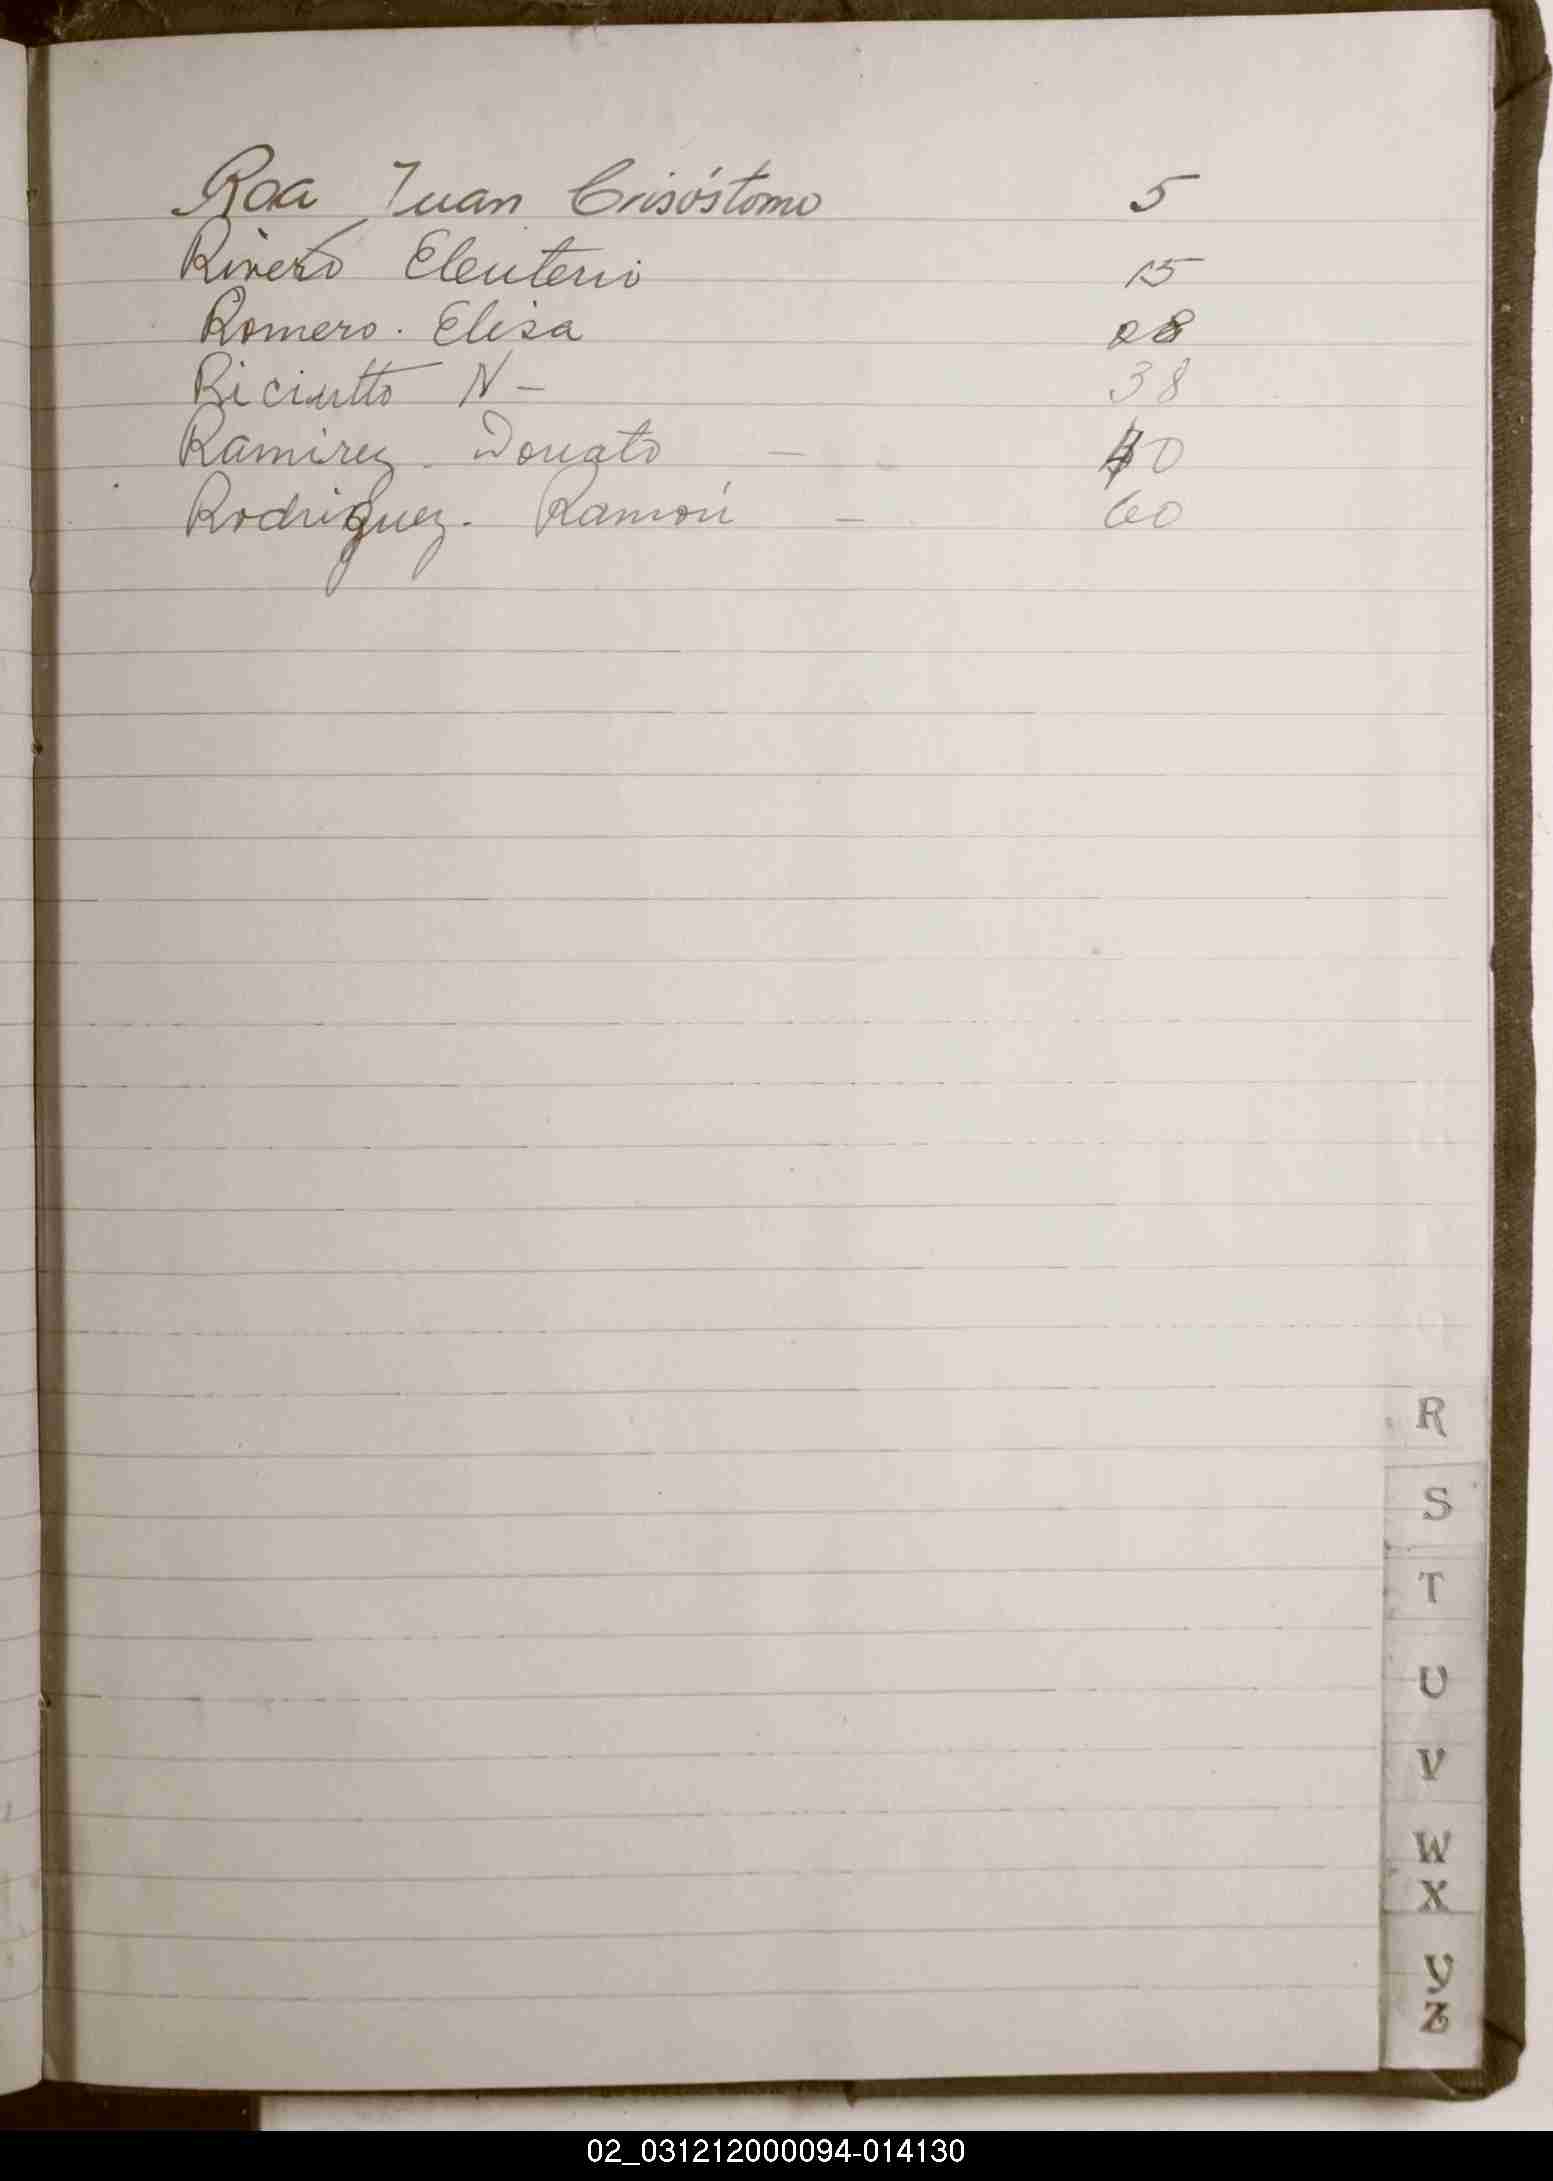 Roa Juan Crisóstomo 5
Rivero Eleuterio 15
Romero. Elisa 28
Riciutto N - 38
Ramirez. Donato - 0
Rodriguez. Ramón - 60
R
S
T
U
V
W
X
Y
Z
02_031212000094-014130